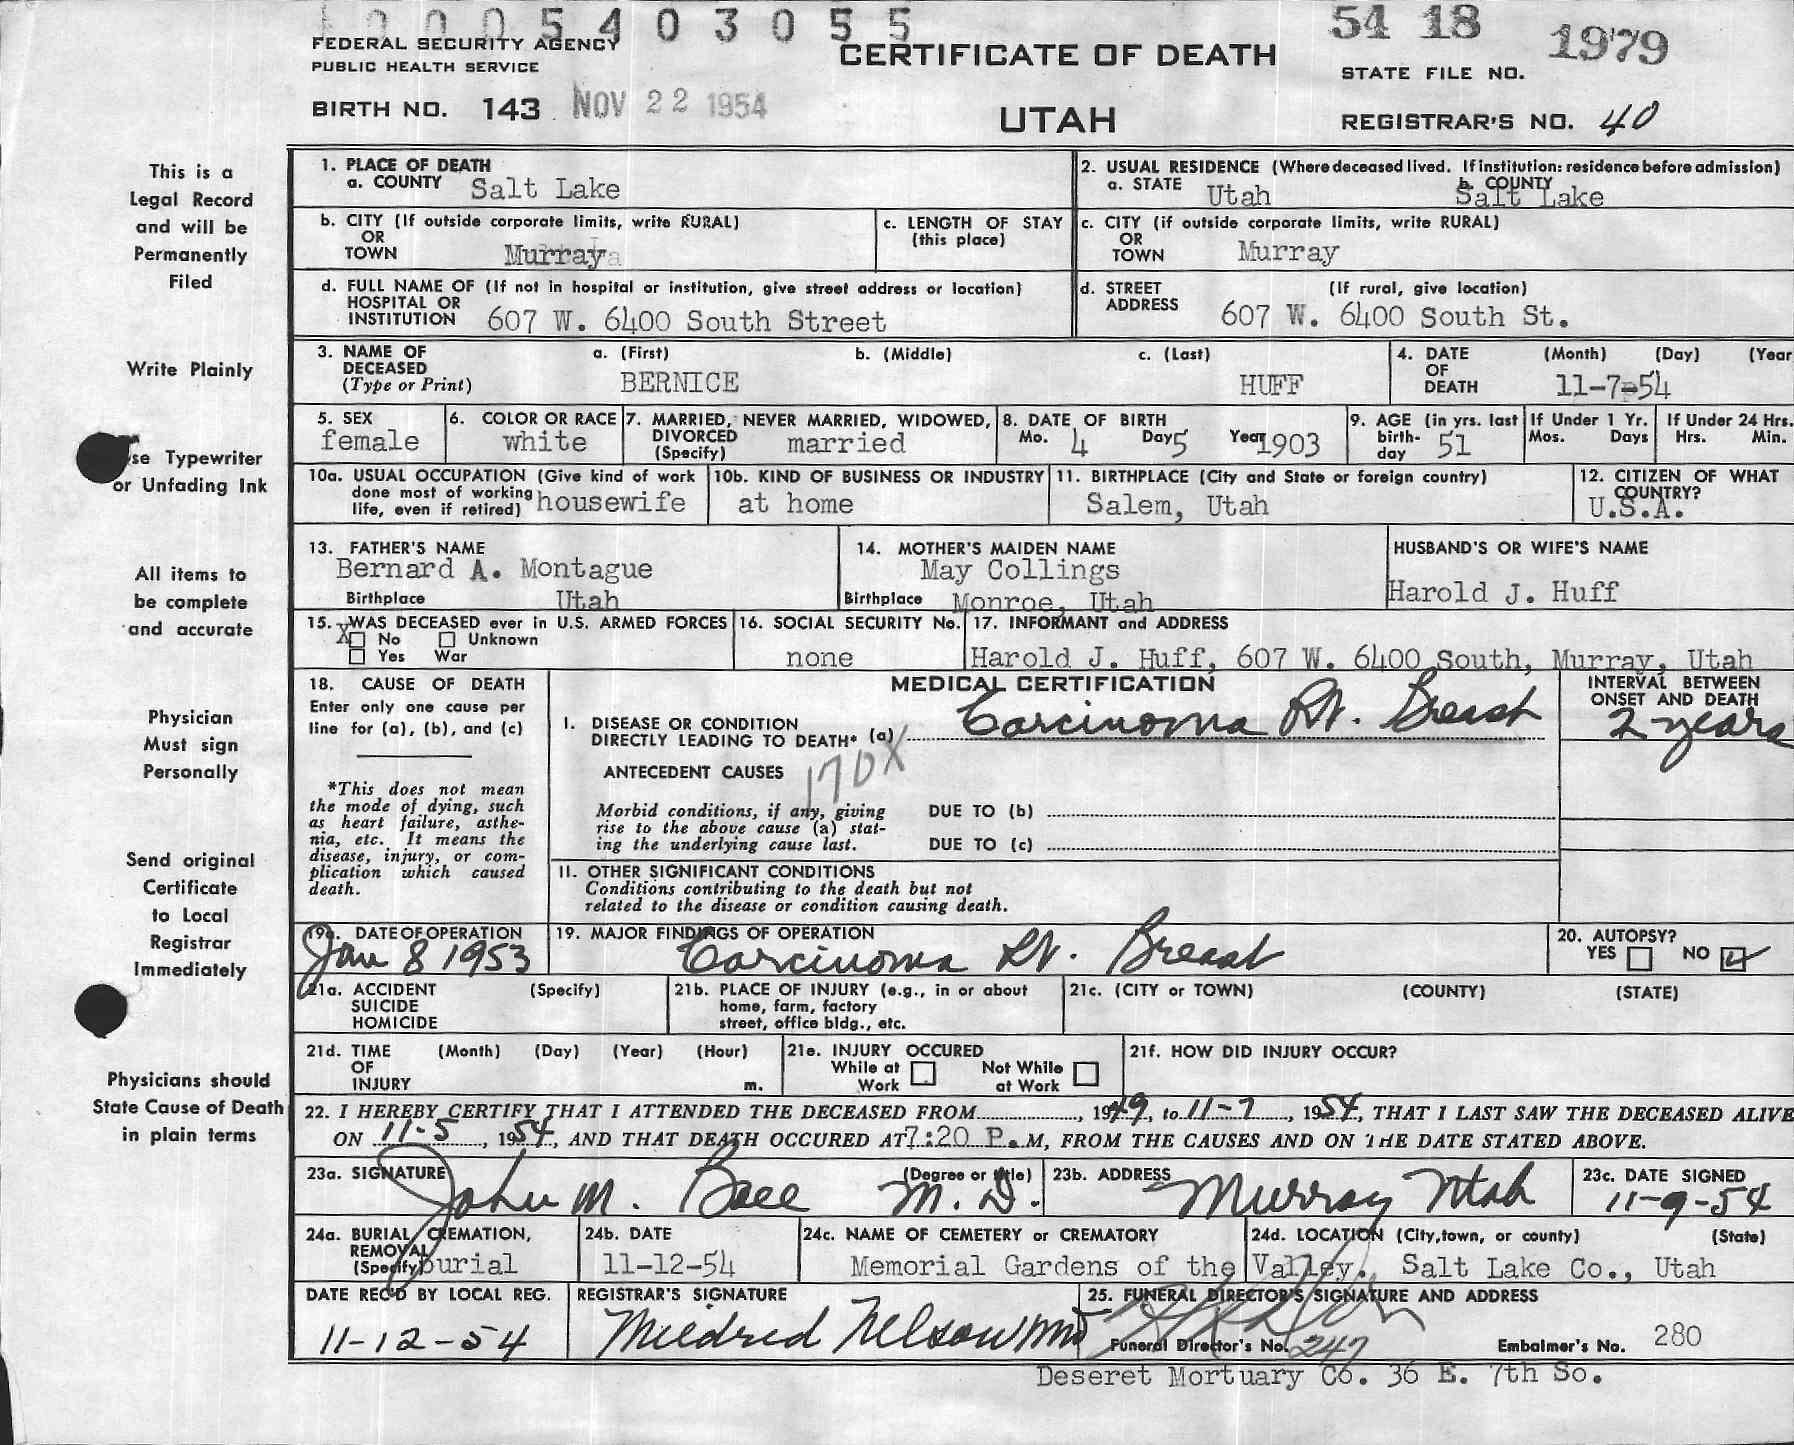 0005403055
54 18 1979
FEDERAL SECURITY AGENCY
PUBLIC HEALTH SERVICE
CERTIFICATE OF DEATH
STATE FILE NO.
BIRTH NO. 143 NOV 22 1954
UTAH
REGISTRAR'S NO. 40
This is a
Legal Record
and will be
Permanently
Filed
Write Plainly
se Typewriter
or Unfading Ink
All items to
be complete
and accurate
Physician
Must sign
Personally
Send original
Certificate
to Local
Registrar
Immediately
Physicians should
State Cause of Death
in plain terms
1. PLACE OF DEATH
a. COUNTY Salt Lake
2. USUAL RESIDENCE (Where deceased lived. If institution: residence before admission)
a. STATE Utah b. COUNTY Salt Lake
b. CITY (If outside corporate limits, write RURAL)
OR
TOWN Murray
c. LENGTH OF STAY
(this place)
c. CITY (if outside corporate limits, write RURAL)
OR
TOWN Murray
d. FULL NAME OF (If not in hospital or institution, give street address or location)
HOSPITAL OR
INSTITUTION 607 W. 6400 South Street
d. STREET (If rural, give location)
ADDRESS 607 W. 6400 South St.
3. NAME OF DECEASED (Type or Print)
a. (First) b. (Middle) c. (Last)
BERNICE HUFF
4. DATE OF DEATH (Month) (Day) (Year
11-7-54
5. SEX
female
6. COLOR OR RACE
white
7. MARRIED, NEVER MARRIED, WIDOWED,
DIVORCED
(Specify) married
8. DATE OF BIRTH
Mo. 4 Day 5 Year 1903
9. AGE (in yrs. last
birth-
day 51
If Under 1 Yr.
Mos. Days
If Under 24 Hrs.
Hrs. Min.
10a. USUAL OCCUPATION (Give kind of work
done most of working
life, even if retired) housewife
10b. KIND OF BUSINESS OR INDUSTRY
at home
11. BIRTHPLACE (City and State or foreign country)
Salem, Utah
12. CITIZEN OF WHAT
COUNTRY?
U.S.A.
13. FATHER'S NAME
Bernard A. Montague
Birthplace Utah
14. MOTHER'S MAIDEN NAME
May Collings
Birthplace Monroe, Utah
HUSBAND'S OR WIFE'S NAME
Harold J. Huff
15. WAS DECEASED ever in U.S. ARMED FORCES
X No Unknown
Yes War
16. SOCIAL SECURITY No.
none
17. INFORMANT and ADDRESS
Harold J. Huff, 607 W. 6400 South, Murray, Utah
18. CAUSE OF DEATH
Enter only one cause per
line for (a), (b), and (c)
*This does not mean
the mode of dying, such
as heart failure, asthe-
nia, etc. It means the
disease, injury, or com-
plication which caused
death.
MEDICAL CERTIFICATION
INTERVAL BETWEEN
ONSET AND DEATH
I. DISEASE OR CONDITION
DIRECTLY LEADING TO DEATH* (a) Carcinoma Rt. Breast
2 years
170X
ANTECEDENT CAUSES
Morbid conditions, if any, giving
rise to the above cause (a) stat-
ing the underlying cause last.
DUE TO (b)
DUE TO (c)
11. OTHER SIGNIFICANT CONDITIONS
Conditions contributing to the death but not
related to the disease or condition causing death.
19a. DATE OF OPERATION
Jan 8 1953
19. MAJOR FINDINGS OF OPERATION
Carcinoma Rt. Breast
20. AUTOPSY?
YES NO
21a. ACCIDENT (Specify)
SUICIDE
HOMICIDE
21b. PLACE OF INJURY (e.g., in or about
home, farm, factory
street, office bldg., etc.
21c. (CITY or TOWN) (COUNTY) (STATE)
21d. TIME (Month) (Day) (Year) (Hour)
OF
INJURY m.
21e. INJURY OCCURED
While at Work Not While at Work
21f. HOW DID INJURY OCCUR?
22. I HEREBY CERTIFY THAT I ATTENDED THE DECEASED FROM , 1949, to 11-7, 1954, THAT I LAST SAW THE DECEASED ALIVE
ON 11-5, 1954, AND THAT DEATH OCCURED AT 7:20 P.M, FROM THE CAUSES AND ON THE DATE STATED ABOVE.
23a. SIGNATURE (Degree or title)
John M. M.D.
23b. ADDRESS
Murray Utah
23c. DATE SIGNED
11-9-54
24a. BURIAL, CREMATION,
REMOVAL
(Specify) burial
24b. DATE
11-12-54
24c. NAME OF CEMETERY or CREMATORY
24d. LOCATION (City, town, or county) (State)
Memorial Gardens of the Valley. Salt Lake Co., Utah
DATE REC'D BY LOCAL REG.
11-12-54
REGISTRAR'S SIGNATURE
Mildred Nelson
25. FUNERAL DIRECTOR'S SIGNATURE AND ADDRESS
Funeral Director's No. 247 Embalmer's No. 280
Deseret Mortuary Co. 36 E. 7th So.